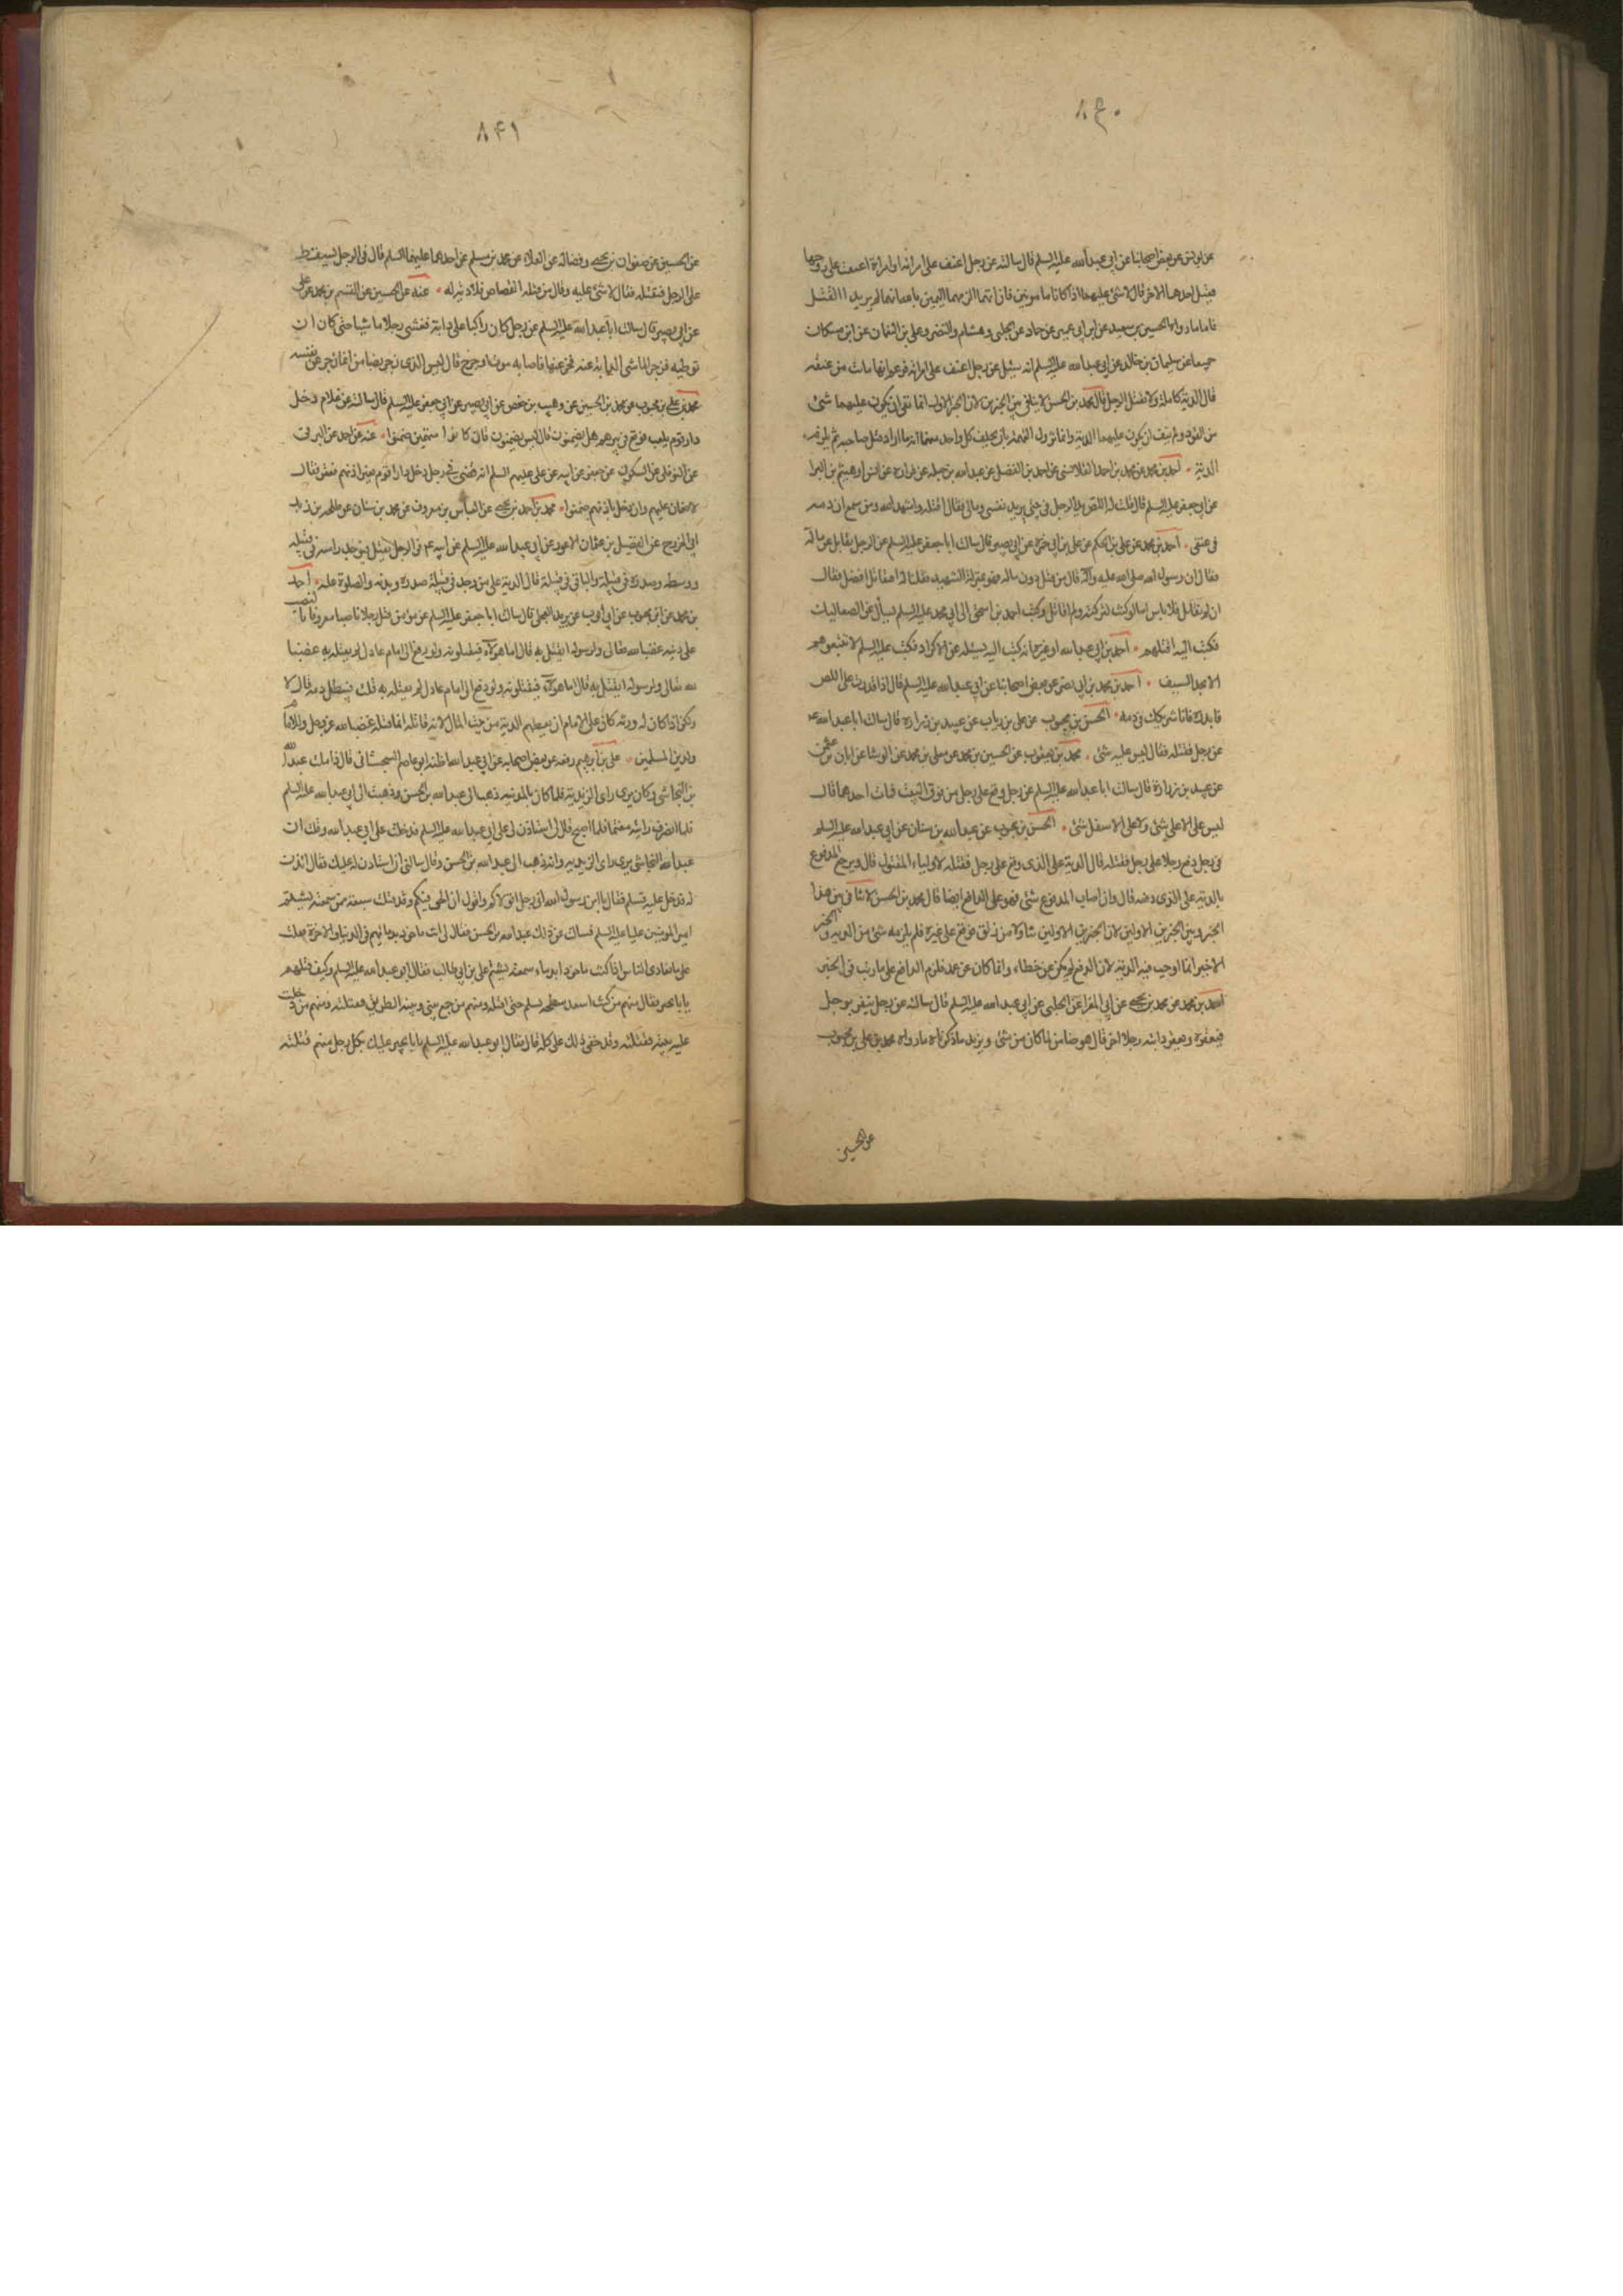 ٨٤٠
عن يونس عن بعض اصحابنا عن ابي عبدالله عليه السلم قال سالته عن رجل اعنف على امراته او امراة اعنفت على زوجها
فقتل احدهما الاخر قال لا شئ عليهما اذا كانا مامونين فان اتهما الزمهما اليمين بالله انهما لم يريدا القتل
فاما ما رواه الحسين بن سعيد عن ابن ابي عمير عن حماد عن الحلبي وهشام والنضر وعلي بن النعمان عن ابن مسكان
جميعا عن سليمان بن خالد عن ابي عبدالله عليه السلم انه سئل عن رجل اعنف على امراته فزعم انها ماتت من عنفه
قال الدية كاملة ولا يقتل الرجل قال محمد بن الحسن لا تنافي بين الخبرين لان الخبر الاول انما نفى ان يكون عليهما شئ
من القود ولم ينف ان يكون عليهما الدية وانما تزول التهمة بان يحلف كل واحد منهما انه ما اراد قتل صاحبه ثم يلزمه
الدية ٠ احمد بن محمد عن محمد بن احمد القلانسي عن احمد بن الفضل عن عبدالله بن جبلة عن فزارة عن انس او هيثم بن البرا
عن ابي جعفر عليه السلم قال قلت له اللص يدخل في بيتي يريد نفسي ومالي فقال اقتله واشهد الله ومن سمع ان دمه
في عنقي ٠ احمد بن محمد عن علي بن الحكم عن علي بن ابي حمزة عن ابي بصير قال سالت ابا جعفر عليه السلم عن الرجل يقاتل عن ماله
فقال ان رسول الله صلى الله عليه وآله قال من قتل دون ماله فهو بمنزلة الشهيد فقلنا له افيقاتل افضل فقال
ان لم يقاتل فلا باس اما لو كنت لتركته ولم اقاتل وكتب احمد بن اسحق الى ابي محمد عليه السلم يسأل عن الصعاليك
فكتب اليه اقتلهم ٠ احمد بن ابي عبدالله او غيره انه كتب اليه يسئله عن الاكراد فكتب عليه السلم لا تنبهوهم
الا بحد السيف ٠ احمد بن محمد بن ابي نصر عن بعض اصحابنا عن ابي عبدالله عليه السلم قال اذا قدرت على اللص
فابدره فانا شريكك في دمه ٠ الحسن بن محبوب عن علي بن رياب عن عبيد بن زرارة قال سالت ابا عبدالله عه
عن رجل فقتله فقال ليس عليه شئ ٠ محمد بن يعقوب عن الحسين بن محمد عن معلى بن محمد عن الوشا عن ابان بن عثمن
عن عبيد بن زرارة قال سالت ابا عبدالله عليه السلم عن رجل وقع على رجل من فوق البيت فمات احدهما قال
ليس على الاعلى شئ ولا على الاسفل شئ ٠ الحسن بن محبوب عن عبدالله بن سنان عن ابي عبدالله عليه السلم
في رجل دفع رجلا على رجل فقتله قال الدية على الذي وقع على رجل فقتله لاولياء المقتول قال ويرجع المدفوع
بالدية على الذي دفعه قال وان اصاب المدفوع شئ فهو على الدافع ايضا قال محمد بن الحسن لا تنافي بين هذا
الخبر وبين الخبرين الاولين لان الخبرين الاولين تناولا من زلق فوقع على غيره فلم يلزمه شئ من الدية والخبر
الاخير انما اوجب فيه الدية لان الدفع لم يكن عن خطاء وانما كان عن عمد فلزم الدافع على ما رتب في الخبر
احمد بن محمد عن محمد بن يحيى عن ابي المغرا عن الحلبي عن ابي عبدالله عليه السلم قال سالته عن رجل ينفر برجل
فيعقره ويعقر دابته رجلا اخر قال هو ضامن لما كان من شئ ويزيد ما ذكرناه ما رواه محمد بن علي بن محبوب
عن الحسين
٨٤١
عن الحسين عن صفوان بن يحيى وفضالة عن العلاء عن محمد بن مسلم عن احدهما عليهما السلم قال في الرجل يسقط
على الرجل فيقتله فقال لا شئ عليه وقال من قتله القصاص فلا دية له ٠ عنه عن الحسين عن القسم بن محمد عن علي
عن ابي بصير قال سالت ابا عبدالله عليه السلم عن رجل كان راكبا على دابة فغشى رجلا ماشيا حتى كاد ان
توطيه فزجر الماشي الدابة عنه فخر عنها فاصابه موت او جرح قال ليس الذي زجر بضامن انما زجر عن نفسه
محمد بن علي بن محبوب عن محمد بن الحسين عن وهيب بن حفص عن ابي بصير عن ابي جعفر عليه السلم قال سالته عن غلام دخل
دار قوم يلعب فوقع في بيرهم هل يضمنون قال ليس يضمنون فان كانوا متهمين ضمنوا ٠ عنه عن احمد عن البرقي
عن النوفلي عن السكوني عن جعفر عن ابيه عن علي عليهم السلم انه قضى في رجل دخل دار قوم بغير اذنهم فعقر فقال
لا ضمان عليهم وان دخل باذنهم ضمنوا ٠ محمد بن احمد بن يحيى عن العباس بن معروف عن محمد بن سنان عن طلحه بن زيد
ابي الخزرج عن الفضيل بن عثمان الاعور عن ابي عبدالله عليه السلم عن ابيه عه في الرجل يقتل فيوجد راسه في قبيلة
ووسطه وصدره في قبيلة والباقي في قبيلة قال الدية على من وجد في قبيلة صدره وبدنه والصلوة عليه ٠ احمد
بن محمد عن ابن محبوب عن ابي ايوب عن بريد العجلي قال سالت ابا جعفر عليه السلم عن مؤمن قتل رجلا ناصبا معروفا بالنصب
على دينه غضبا لله تعالى ولرسوله ايقتل به قال اما هؤلاء فيقتلونه ولو رفع الى امام عادل لم يقتله به غضبا
لله تعالى ولرسوله ايقتل به قال اما هؤلاء فيقتلونه ولو رفع الى امام عادل لم يقتله به قلت فيبطل دمه قال لا
ولكن اذا كان له ورثه كان على الامام ان يعطيهم الدية من بيت المال لان قاتله انما قتله غضبا لله عز وجل وللامام
ولدين المسلمين ٠ علي بن ابرهيم رفعه عن بعض اصحابه عن ابي عبدالله اظنه ابو عاصم السجستاني قال زاملت عبدالله
بن النجاشي وكان يرى راى الزيدية فلما كان بالمدينه ذهب الى عبدالله بن الحسن وذهبت الى ابي عبدالله عليه السلم
فلما انصرف رايته مغتما فلما اصبح قال لي استاذن لي على ابي عبدالله عليه السلم فدخلت على ابي عبدالله وقلت ان
عبدالله النجاشي يرى راى الزيديه وانه ذهب الى عبدالله بن الحسن وقال سالني ان استاذن له عليك فقال ائذن
له فدخل عليه فسلم فقال يا ابن رسول الله اني رجل اتولاكم واقول ان الحق فيكم وقد قتلت سبعة ممن سمعته يشتم
امير المومنين عليا عليه السلم فسالت عن ذلك عبدالله بن الحسن فقال لي انت ماخوذ بدمائهم في الدنيا والاخرة فقلت
على ما نعادي الناس اذا كنت ماخوذا بدماء من سمعته يشتم علي بن ابي طالب فقال ابو عبدالله عليه السلم وكيف قتلتهم
يا با بحير فقال منهم من كنت اصعد سطحه بسلم حتى اقتله ومنهم من جمع بيني وبينه الطريق فقتلته ومنهم من دخلت
عليه بيته فقتلته وقد خفي ذلك على كله قال فقال ابو عبدالله عليه السلم يا با بحير عليك بكل رجل منهم قتلته